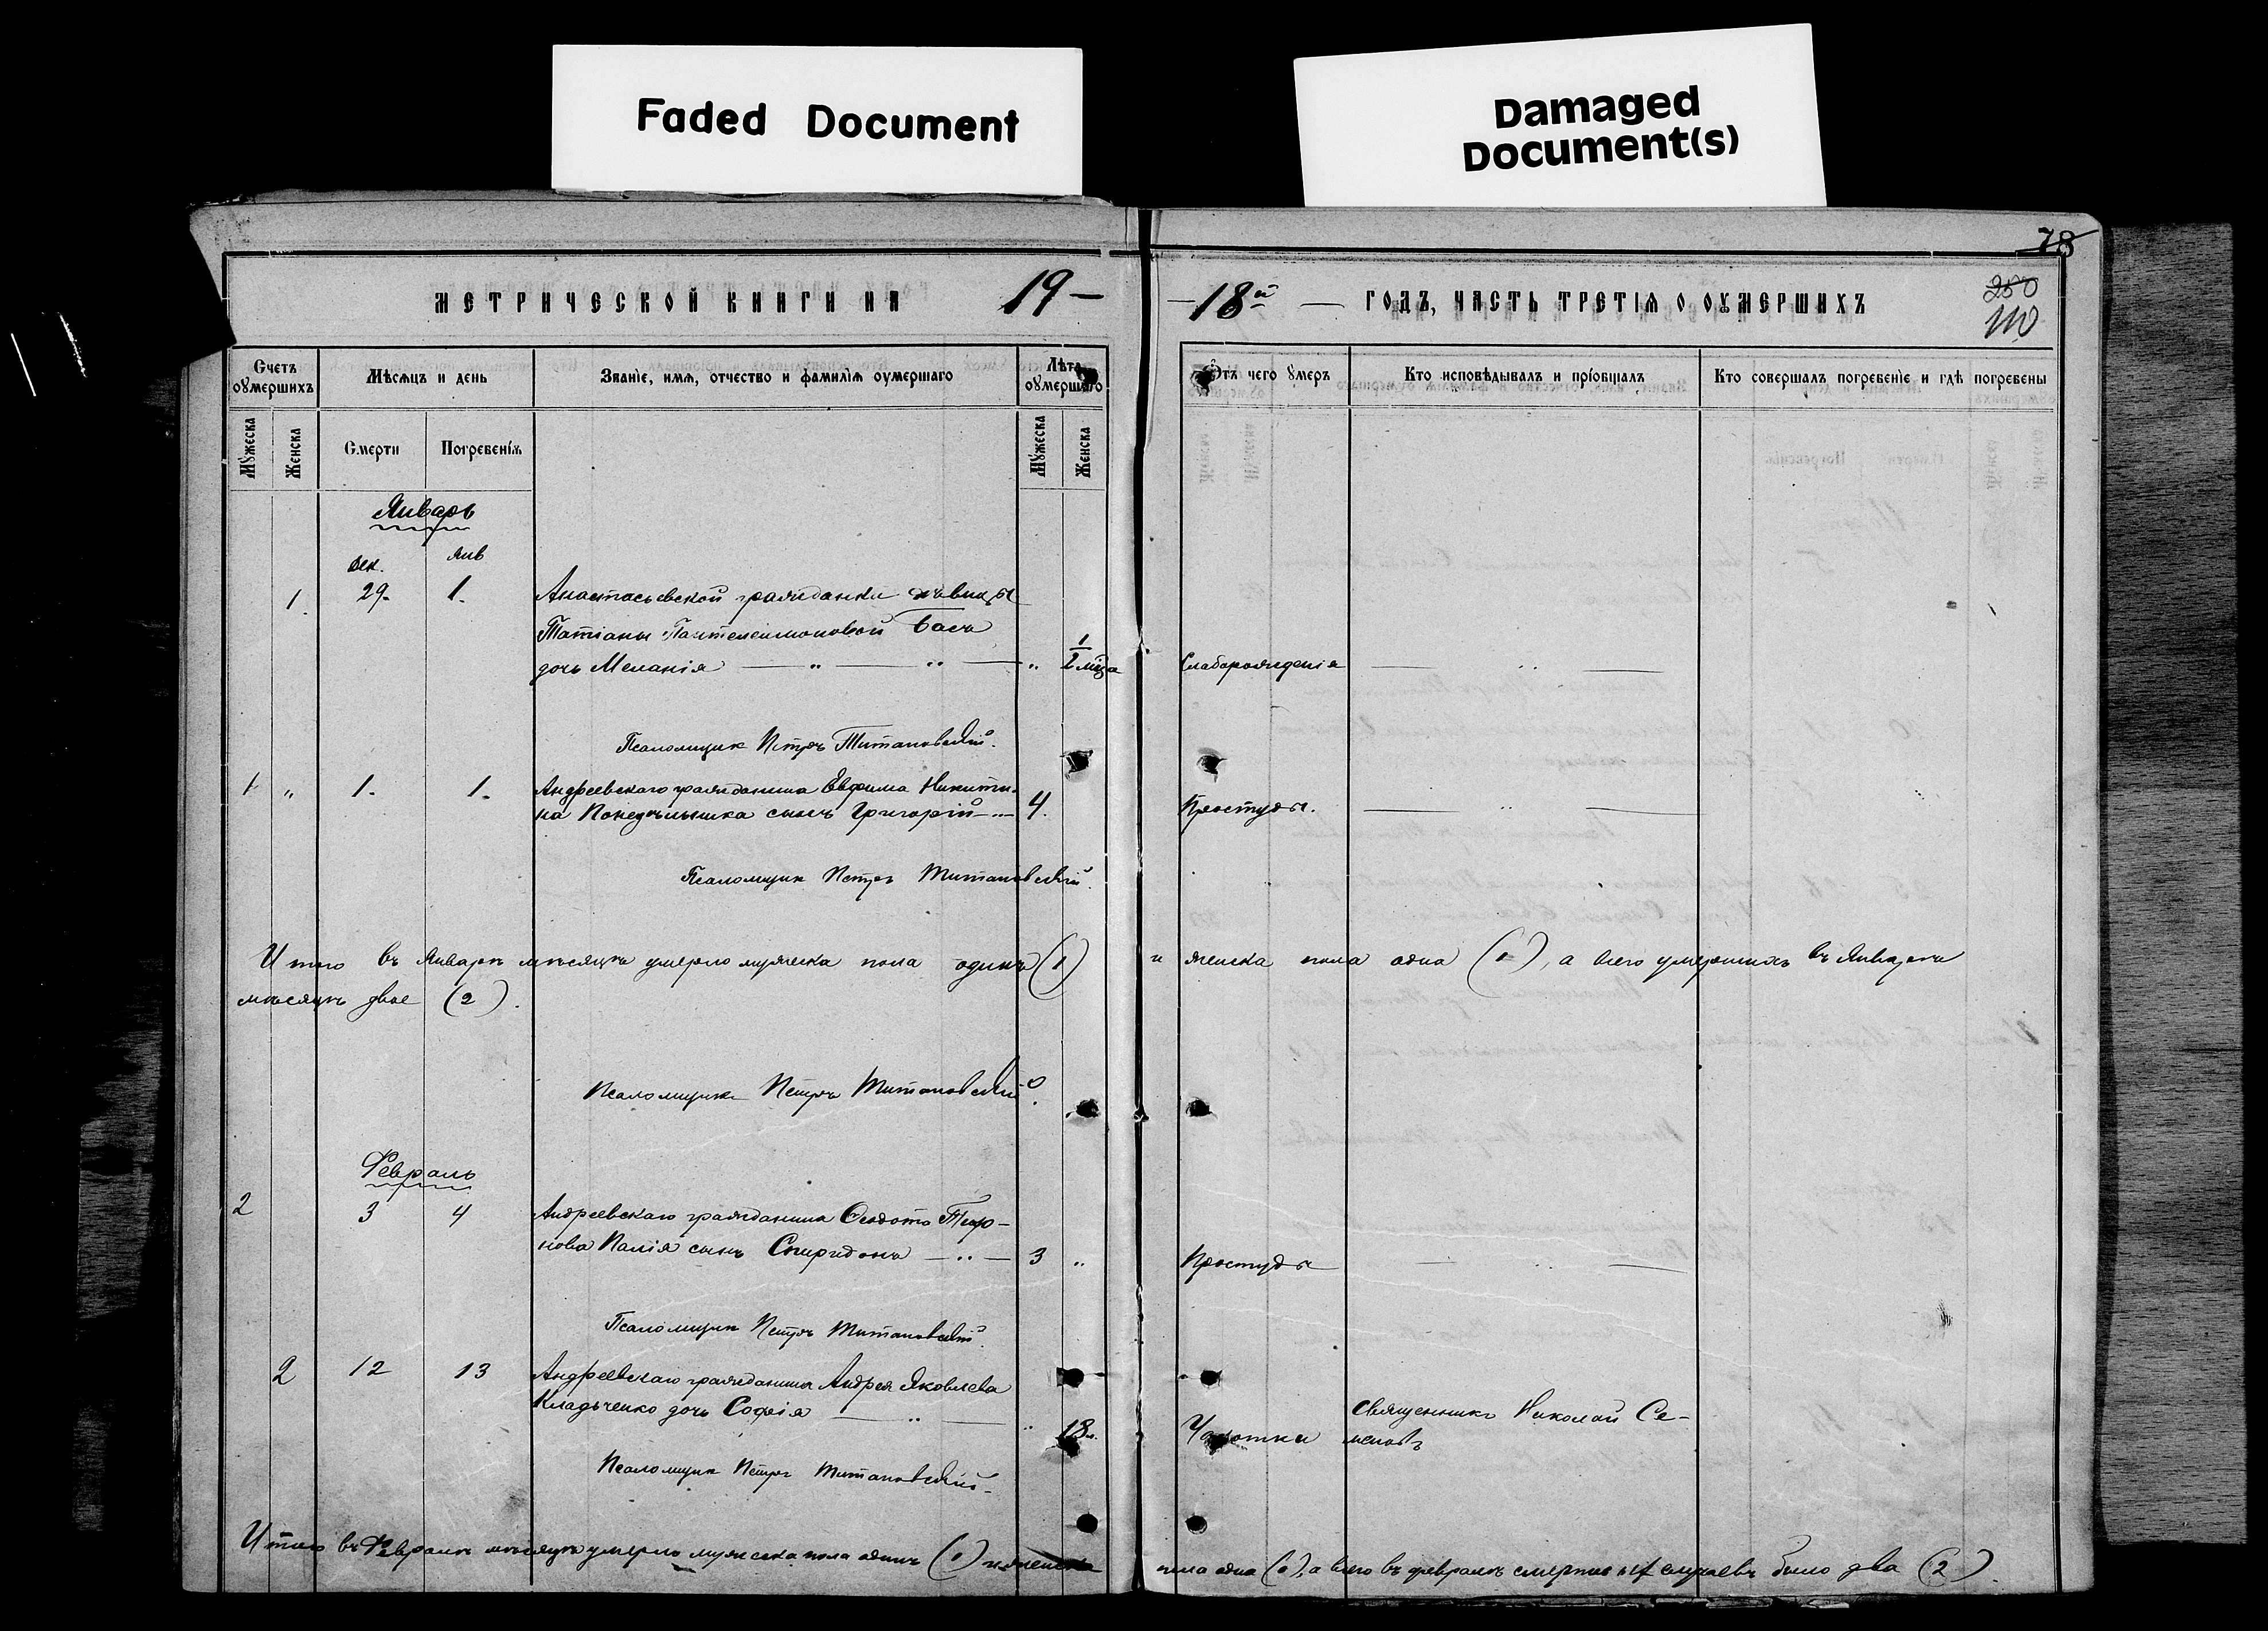 Faded Document
Damaged
Document(s)
78
МЕТРИЧЕСКОЙ КНИГИ НА 19 — 18й — ГОДЪ, ЧАСТЬ ТРЕТІѦ О ОУМЕРШИХЪ
250
110
Счетъ оумершихъ
Мѣсѧцъ и день
Званіе, имѧ, отчество и фамиліѧ оумершаго
Лѣта оумершаго
Ѿтъ чего оумеръ
Кто исповѣдывалъ и пріобщалъ
Кто совершалъ погребеніе и гдѣ погребены
Мужеска
Женска
Смерти
Погребеніѧ
Мужеска
Женска
Январь
Дек. Янв
1. 29. 1. Анастасьевской гражданки дѣвицы
Татіаны Пантелеимоновой Басъ
дочь Меланія — „ — „ — „ 1/2 мѣца Слаборожденія — „ —
Псаломщик Петръ Титановскій.
1 „ 1. 1. Андреевскаго гражданина Евфима Никити-
на Понедѣльника сынъ Григорій — „ — 4. Простуды. — „ —
Псаломщик Петръ Титановскій.
Итого въ Январѣ мѣсяцѣ умерло мужеска пола одинъ (1) и женска пола одна (1), а всего умершихъ въ Январѣ
мѣсяцѣ двое (2).
Псаломщикъ Петръ Титановскій.
Февраль
2 3 4 Андреевскаго гражданина Феодота
нова Палія сынъ Спиридонъ — „ — 3 „ Простуды — „ —
Псаломщик Петръ Титановскій.
2 12 13 Андреевскаго гражданина Андрея Яковлева
Кладьченко дочь Софія — „ — „ 18 Чахотки Священникъ Николай Се-
меновъ
Псаломщик Петръ Титановскій.
Итого въ Февралѣ мѣсяцѣ умерло мужеска пола одинъ (1) и женска пола одна (1), а всего въ февралѣ смертныхъ случаевъ было два (2).